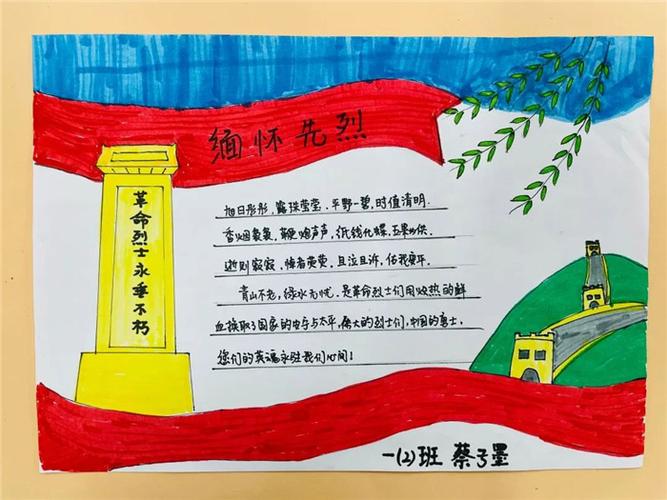 缅怀先烈
革命烈士永垂不朽
旭日彤彤，露珠莹莹，平野一碧，时值清明.
香烟袅袅，鞭炮声声，纸钱化蝶，
逝则寂寂，悼者荧荧，且泣且诉，佑我康平.
青山不老，绿水无忧，是革命烈士们用炽热的鲜
血换取了国家的安宁与太平，伟大的烈士们，中国的勇士，
您们的英魂永驻我们心间！
一(2)班 蔡子墨